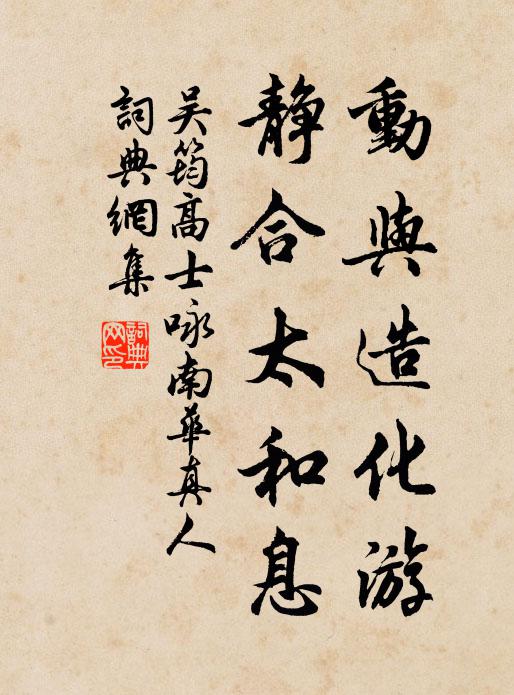 動與造化游
静合太和息
吴筠高士咏南華真人
詞典網集
詞典
网印